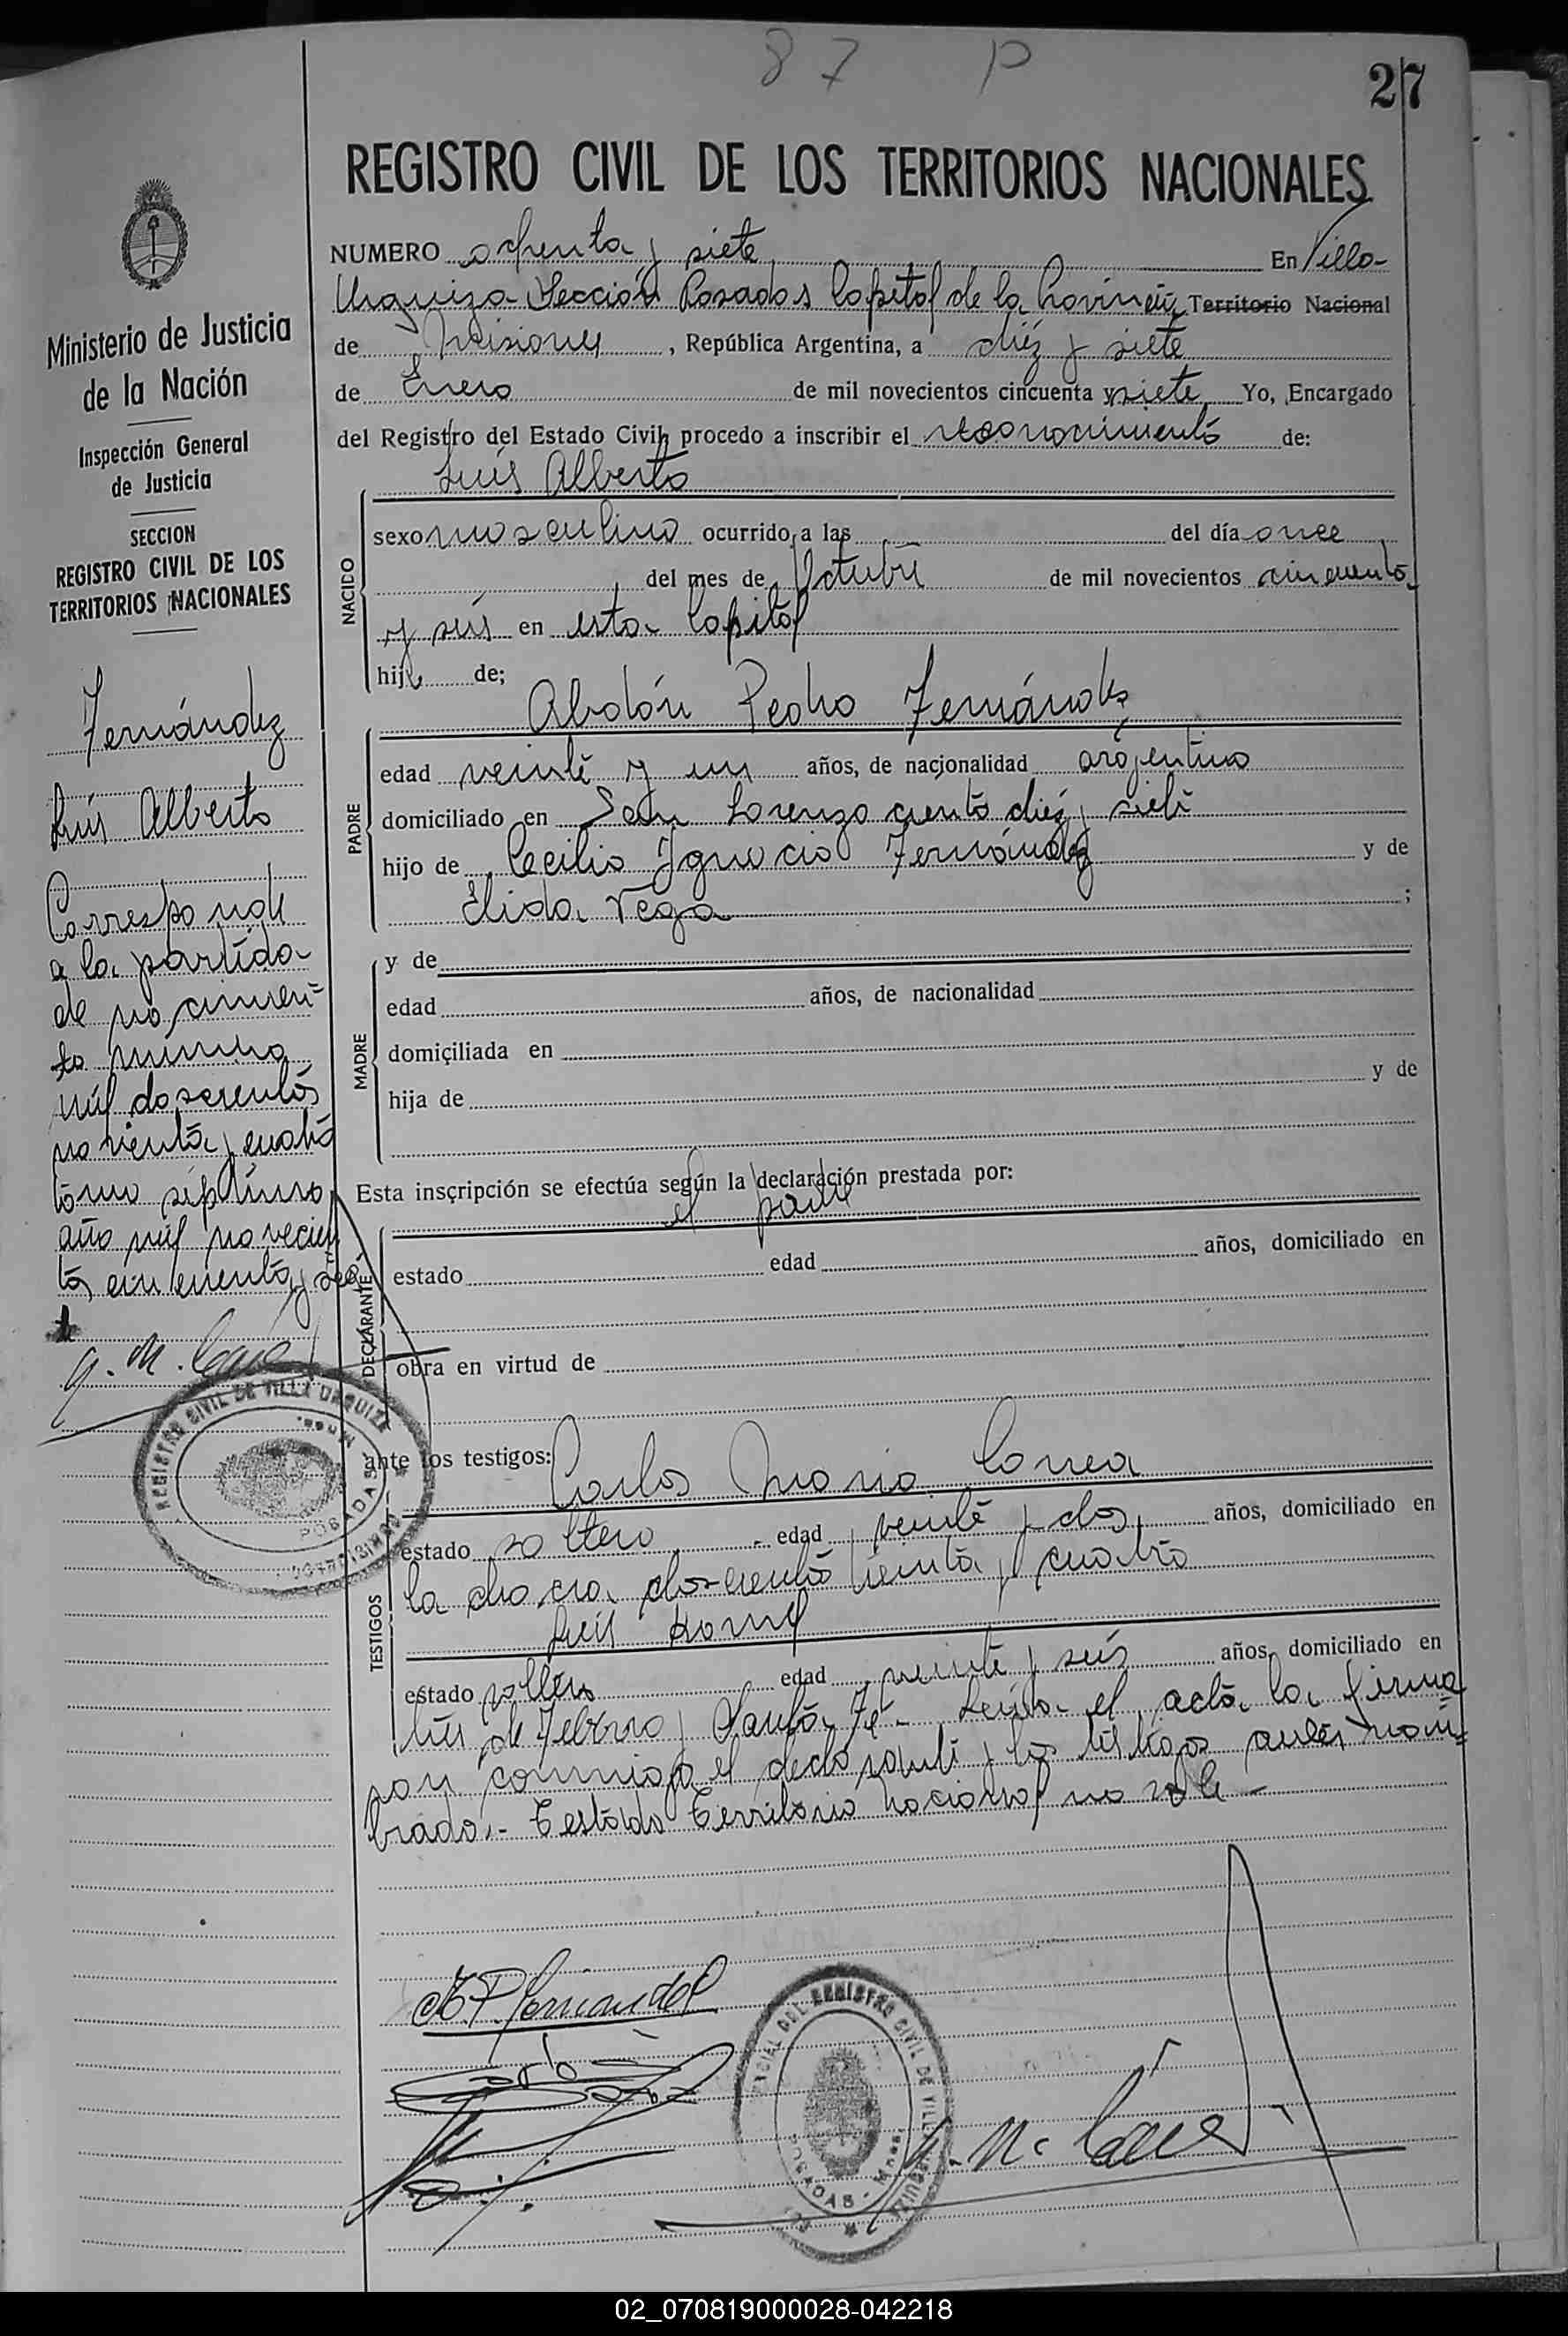 87 P
27
REGISTRO CIVIL DE LOS TERRITORIOS NACIONALES
NUMERO ochenta y siete En Villa
Urquiza Sección Posadas Capital de la Provincia Territorio Nacional
de Misiones, República Argentina, a diéz y siete
de Enero de mil novecientos cincuenta y siete Yo, Encargado
del Registro del Estado Civil, procedo a inscribir el reconocimiento de:
Luís Alberto
NACIDO
sexo masculino ocurrido a las del día once
del mes de Octubre de mil novecientos cincuenta
y seis en esta Capital
hijo de;
Abdón Pedro Fernández
PADRE
edad veinte y un años, de nacionalidad argentino
domiciliado en San Lorenzo ciento diéz y siete
hijo de Cecilio Ignacio Fernández y de
Elida Vega ;
MADRE
y de
edad años, de nacionalidad
domiciliada en
hija de y de
Esta inscripción se efectúa según la declaración prestada por:
el padre
DECLARANTE
estado edad años, domiciliado en
obra en virtud de
ante los testigos: Carlos Mario Correa
TESTIGOS
estado soltero edad veinte y dos años, domiciliado en
la chacra doscientos treinta y cuatro
Luis
estado soltero edad veinte y seis años, domiciliado en
tres de Febrero y Santa Fé - Leida el acta la firma
ron conmigo el declarante y los testigos antes nom=
brado.- Testado Territorio Nacional no vale -
Ministerio de Justicia
de la Nación
Inspección General
de Justicia
SECCION
REGISTRO CIVIL DE LOS
TERRITORIOS NACIONALES
Fernández
Luis Alberto
Corresponde
a la partida
de nacimien-
to número
mil doscientos
noventa y cuatro
tomo séptimo
año mil novecien
tos cincuenta y seis
REGISTRO CIVIL DE VILLA URQUIZA
POSADAS
A. P. Fernandez
REGISTRO CIVIL DE VILLA URQUIZA
POSADAS - Mnes.
02_070819000028-042218